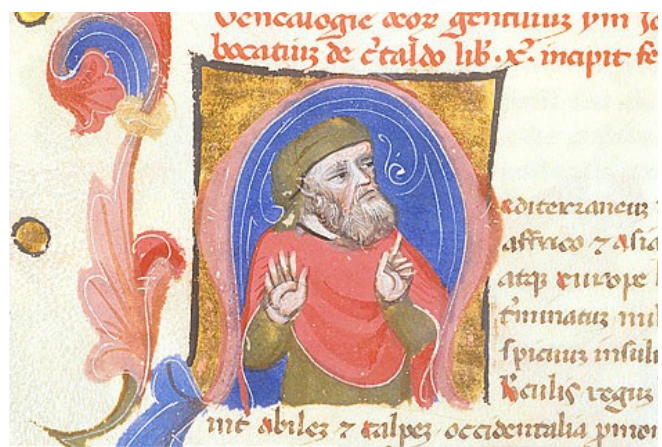 Genealogie deoꝝ gentiliuꝫ ꝑm Jo
bocatiuꝫ de c̄taldo lib. x. incipit fe
editerraneuꝫ
affrico ⁊ asia
atqꝫ europe
t̄minatuꝫ
spicuuꝫ insuli
h̄culis regis
abilez ⁊ calpez occidentalia